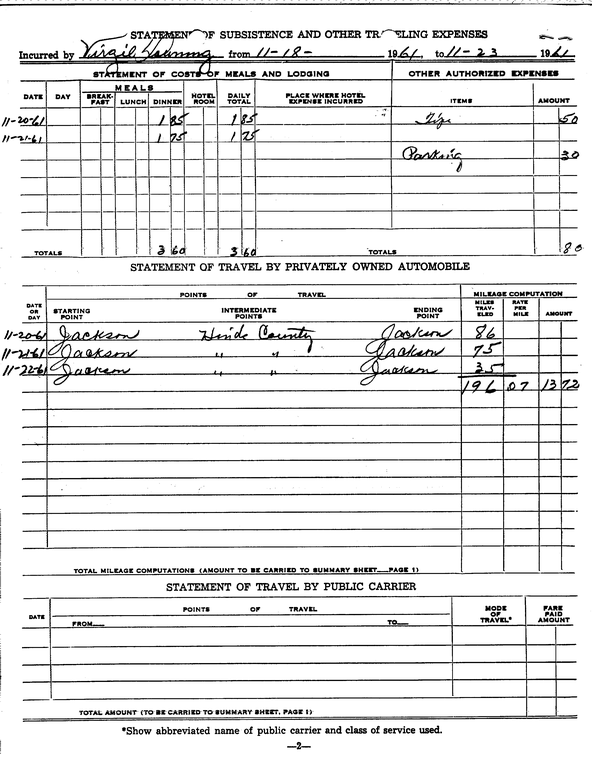 STATEMENT OF SUBSISTENCE AND OTHER TRAVELING EXPENSES
Incurred by Virgil from 11-18- 1961, to 11-23 1961
STATEMENT OF COSTS OF MEALS AND LODGING OTHER AUTHORIZED EXPENSES
DATE DAY MEALS BREAK-FAST LUNCH DINNER HOTEL ROOM DAILY TOTAL PLACE WHERE HOTEL EXPENSE INCURRED ITEMS AMOUNT
11-20-61 1 85 1 85 50
11-21-61 1 75 1 75
Parking 30
TOTALS 3 60 3 60 TOTALS 80
STATEMENT OF TRAVEL BY PRIVATELY OWNED AUTOMOBILE
DATE OR DAY POINTS OF TRAVEL MILEAGE COMPUTATION
STARTING POINT INTERMEDIATE POINTS ENDING POINT MILES TRAV-ELED RATE PER MILE AMOUNT
11-20-61 Jackson Hinds County Jackson 86
11-21-61 Jackson " " Jackson 75
11-22-61 Jackson " " Jackson 35
196 .07 13 72
TOTAL MILEAGE COMPUTATIONS (AMOUNT TO BE CARRIED TO SUMMARY SHEET PAGE 1)
STATEMENT OF TRAVEL BY PUBLIC CARRIER
DATE POINTS OF TRAVEL MODE OF TRAVEL* FARE PAID AMOUNT
FROM TO
TOTAL AMOUNT (TO BE CARRIED TO SUMMARY SHEET, PAGE 1)
*Show abbreviated name of public carrier and class of service used.
—2—